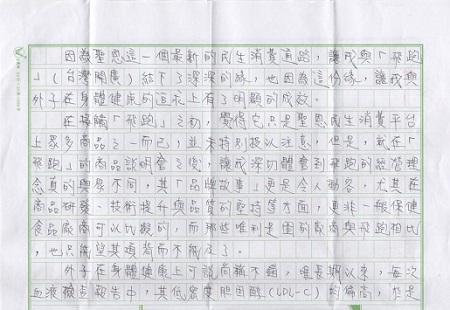 因為聖恩這一個最新的民生消費通路，讓我與「飛跑
」（台灣開廣）結下了深深的緣，也因為這份緣，讓我與
外子在身體健康的造就上有了明顯的成效。
在接觸「飛跑」之初，覺得它只是聖恩民生消費平台
上眾多商品之一而已，並未特別投以注意，但是，就在「
飛跑」的商品說明會之後，讓我深切體會到飛跑的經營理
念真的與眾不同，其「品牌故事」更是令人動容，尤其在
商品研發、技術提升與品質的堅持等方面，更非一般保健
食品廠商可以比擬的，而那些唯利是圖的廠商與飛跑相比
，也只能望其項背而不能及了。
外子在身體健康上可說尚稱不錯，唯長期以來，每次
血液檢查報告中，其低密度胆固醇(LDL-C)均偏高，於是